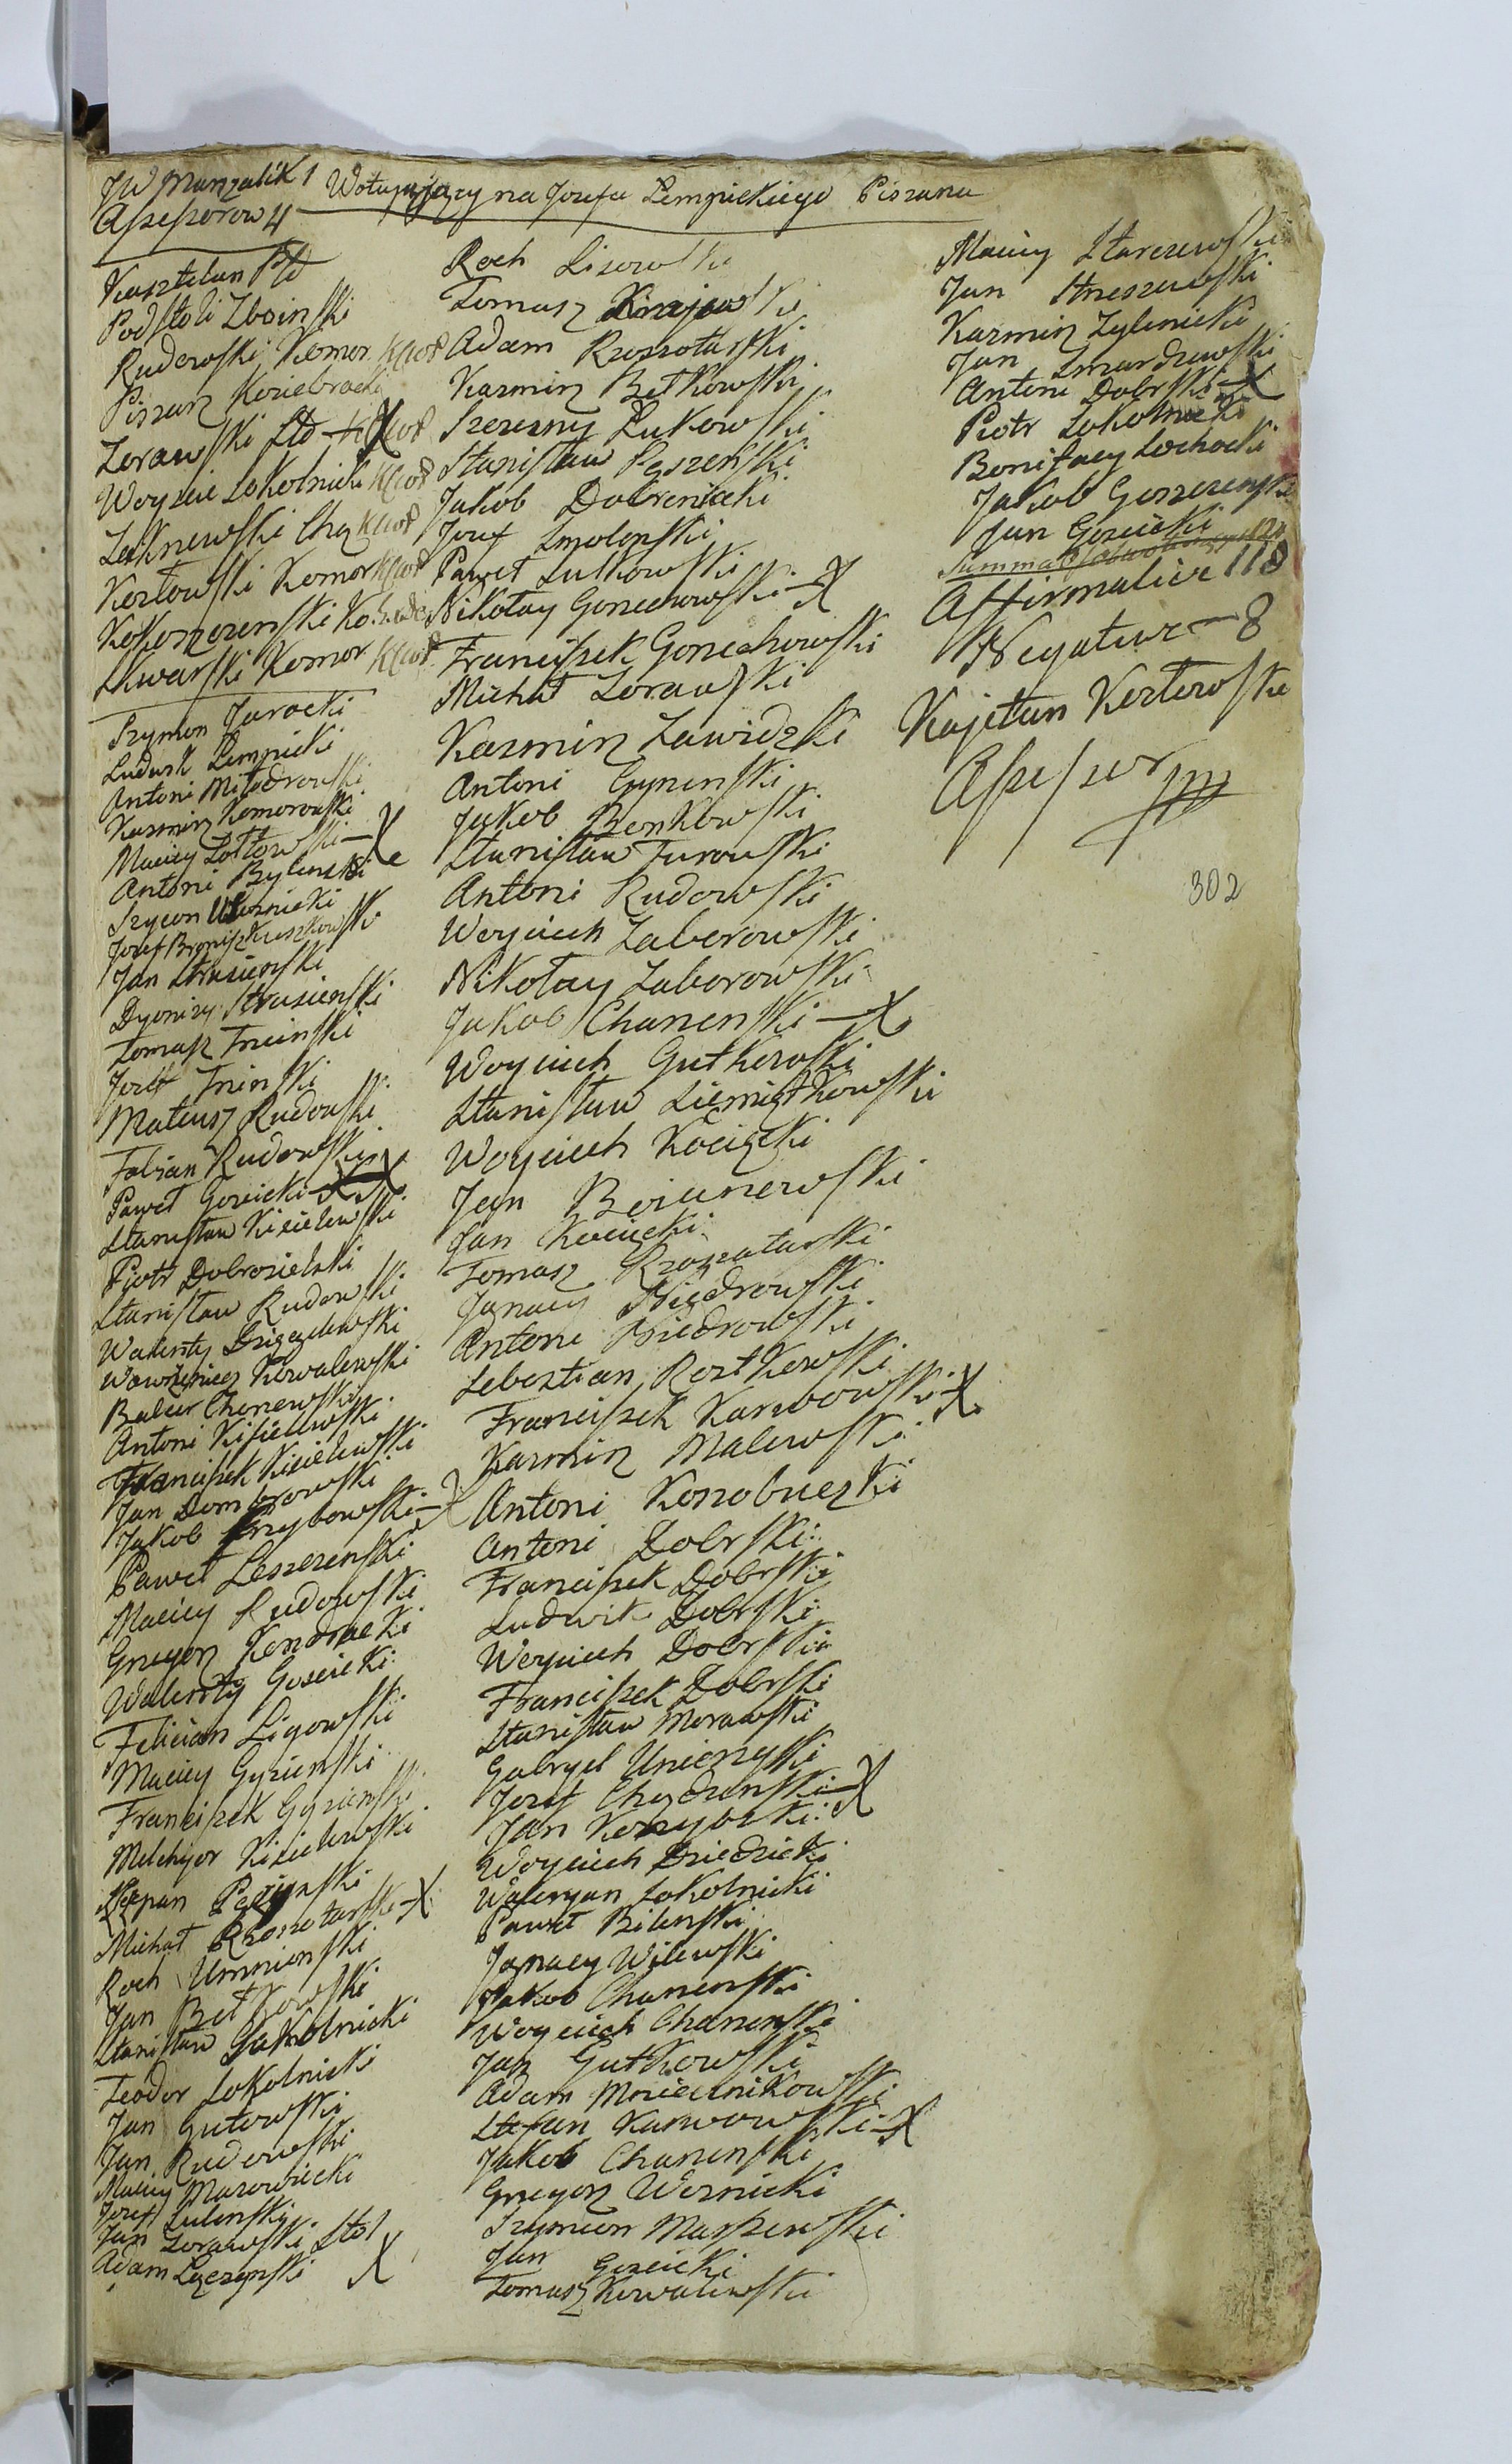 JW Marszalik 1
Assessorow 4
Wotuyący na Jozefa Lempickiego Pisarza
Kasztelan
Podstoli Zboinski
Rudowski Komor.
Pisarz Koziebrocki
Zorawski
Woyski Sokolnicki
Kozłowski Komor
Kokoszczenski
Skwarski Komor
Szymon Jarocki
Ludwik Lempicki
Antoni Miłodrowski
Kazmirz Komorowski
Maciey Zołtowski X
Antoni Bylinski
Szymon
Jozef
Jan Strusienski
Dyonizy Strusienski
Tomasz Trcinski
Jozef
Mateusz Rudowski
Fabian Rudowski
Paweł Goscicki X X
Stanisław Kisielewski
Piotr Dobrosielski
Stanisław Rudowski
Walenty
Wawrzyniec Kowalewski
Antoni Kisielewski
Franciszek Kisielewski
Jan Dombrowski
Jakob Przybowski X
Paweł Leszczenski
Maciey Rudowski
Grzegorz Kendracki
Walenty Goscicki
Felician Ligowski
Maciey Gyzinski
Franciszek Gyzinski
Melchyor Kisielewski
Szczepan
Michał Rzeszotarski X
Roch Umnienski
Jan Bełkowski
Stanisław Sokolnicki
Teodor Sokolnicki
Jan Gutowski
Jan Rudowski
Maciey Mazowiecki
Jozef Zulinski
Jan Zorawski Stol
Adam Łączynski X
Roch Lisowski
Tomasz Krajewski
Adam Rzeszotarski
Kazmirz Bełkowski
Szczesny Łukowski
Stanisław
Jakob Dobrenicki
Jozef Smolenski
Paweł Sutkowski
Nikołay Gonechowski X
Franciszek Gonechowski
Michał Zorawski
Kazmirz Zawidzki
Antoni
Jakob Benkowski
Stanisław Turowski
Antoni Rudowski
Woyciech Zaborowski
Nikołay Zaborowski
Jakob Chanenski X
Woyciech Gutkowski
Stanisław Siemiątkowski
Woyciech Kocięcki
Jan
Jan Kocięcki
Tomasz Rzeszotarski
Ignacy Niedrowski
Antoni Niedrowski
Sebestian Rostkowski
Franciszek Karwowski X
Kazmirz Malewski
Antoni Konobuczki
Antoni Dobrski
Franciszek Dobrski
Ludwik Dobrski
Woyciech Dobrski
Franciszek Dobrski
Stanisław Morawski
Gabryel Unierzyski
Jozef Chądzenski X
Jan Korzybski
Woyciech Dziedzicki
Waleryan Sokolnicki
Paweł Bilenski
Ignacy Wilewski
Jakob Chanenski
Woyciech Chanenski
Jan Gutkowski
Adam
Stefan Karwowski X
Jakob Chanenski
Grzegorz Woznicki
Szymon Marszewski
Jan Goscicki
Tomasz Kowalewski
Maciey Starczewski
Jan Streszewski
Kazmirz Zylenicki
Jan Smardzewski
Antoni Dobrski X
Piotr Sokolnicki
Bonifacy Lochocki
Jakob
Jan Goscicki
Summa
Affirmative 118
Negative 8
Kajetan Kozłowski
Assessor
302